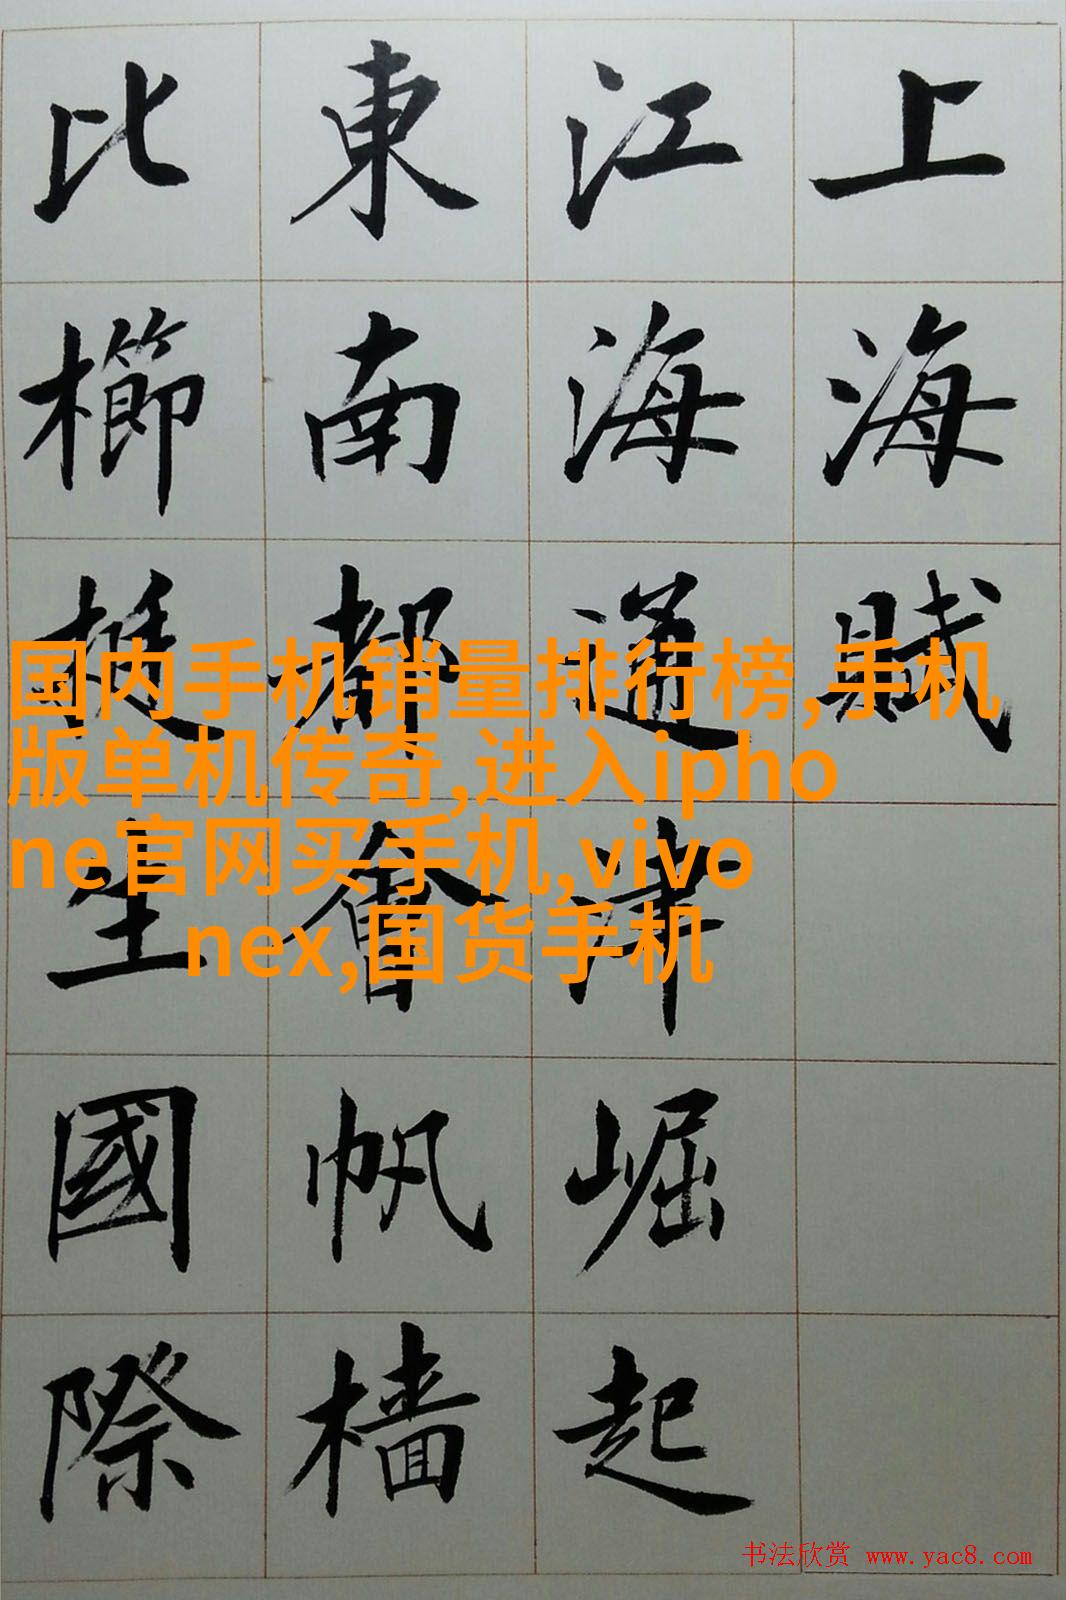 上海賦
江海通津崛起
東南都會帆檣
比櫛挺生國際
国内手机销量排行榜,手机
版单机传奇,进入ipho
ne官网买手机,vivo
nex,国货手机
书法欣赏 www.yac8.com